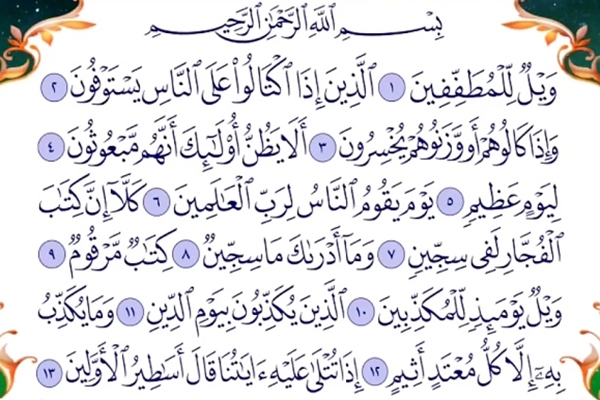 بِسْمِ ٱللَّهِ ٱلرَّحْمَٰنِ ٱلرَّحِيمِ
وَيْلٌ لِّلْمُطَفِّفِينَ ١ ٱلَّذِينَ إِذَا ٱكْتَالُوا۟ عَلَى ٱلنَّاسِ يَسْتَوْفُونَ ٢
وَإِذَا كَالُوهُمْ أَو وَّزَنُوهُمْ يُخْسِرُونَ ٣ أَلَا يَظُنُّ أُو۟لَٰٓئِكَ أَنَّهُم مَّبْعُوثُونَ ٤
لِيَوْمٍ عَظِيمٍ ٥ يَوْمَ يَقُومُ ٱلنَّاسُ لِرَبِّ ٱلْعَٰلَمِينَ ٦ كَلَّآ إِنَّ كِتَٰبَ
ٱلْفُجَّارِ لَفِى سِجِّينٍ ٧ وَمَآ أَدْرَىٰكَ مَا سِجِّينٌ ٨ كِتَٰبٌ مَّرْقُومٌ ٩
وَيْلٌ يَوْمَئِذٍ لِّلْمُكَذِّبِينَ ١٠ ٱلَّذِينَ يُكَذِّبُونَ بِيَوْمِ ٱلدِّينِ ١١ وَمَا يُكَذِّبُ
بِهِۦٓ إِلَّا كُلُّ مُعْتَدٍ أَثِيمٍ ١٢ إِذَا تُتْلَىٰ عَلَيْهِ ءَايَٰتُنَا قَالَ أَسَٰطِيرُ ٱلْأَوَّلِينَ ١٣